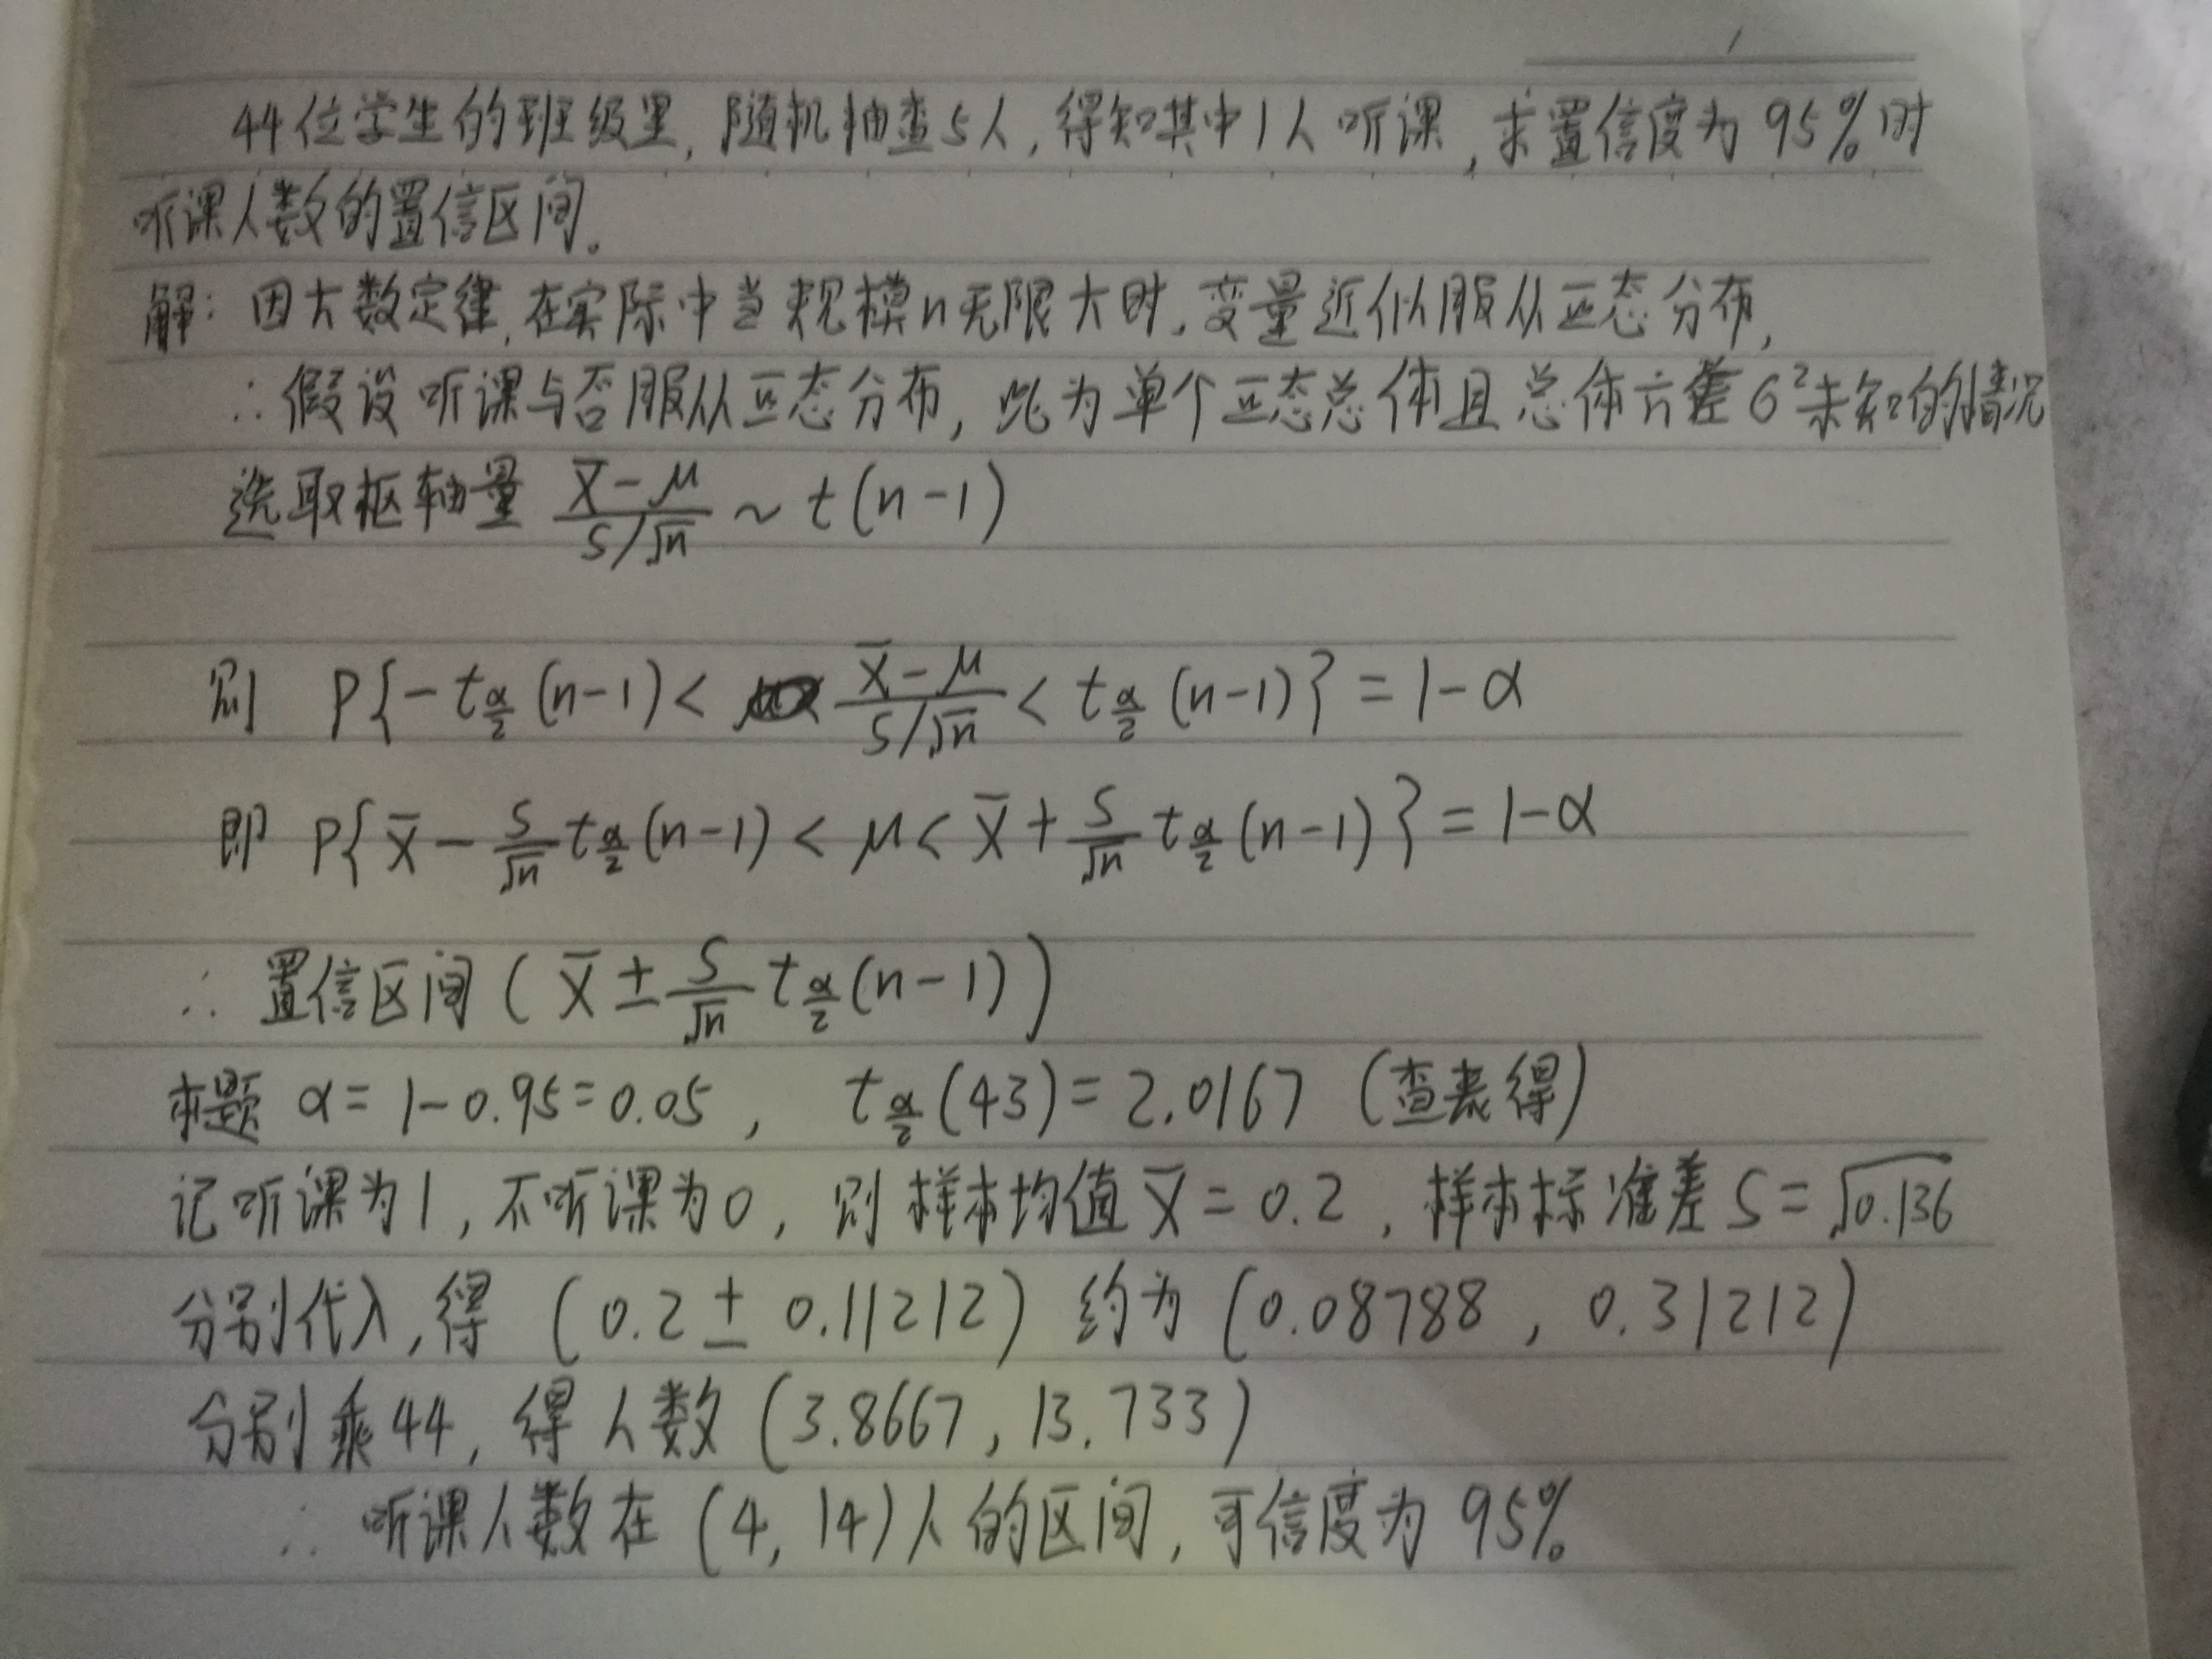 44位学生的班级里,随机抽查5人,得知其中1人听课,求置信度为95%时
听课人数的置信区间。
解:因大数定律,在实际中当规模n无限大时,变量近似服从正态分布,
∴假设听课与否服从正态分布,此为单个正态总体且总体方差σ²未知的情况
选取枢轴量 (X̄-μ)/(S/√n) ~ t(n-1)
则 P{-t_{α/2}(n-1) < (X̄-μ)/(S/√n) < t_{α/2}(n-1)} = 1-α
即 P{X̄ - S/√n t_{α/2}(n-1) < μ < X̄ + S/√n t_{α/2}(n-1)} = 1-α
∴ 置信区间 (X̄ ± S/√n t_{α/2}(n-1))
本题 α=1-0.95=0.05, t_{α/2}(43)=2.0167 (查表得)
记听课为1,不听课为0,则样本均值X̄=0.2,样本标准差S=√0.136
分别代入,得 (0.2±0.11212) 约为 (0.08788, 0.31212)
分别乘44,得人数 (3.8667, 13.733)
∴ 听课人数在 (4, 14)人的区间,可信度为95%